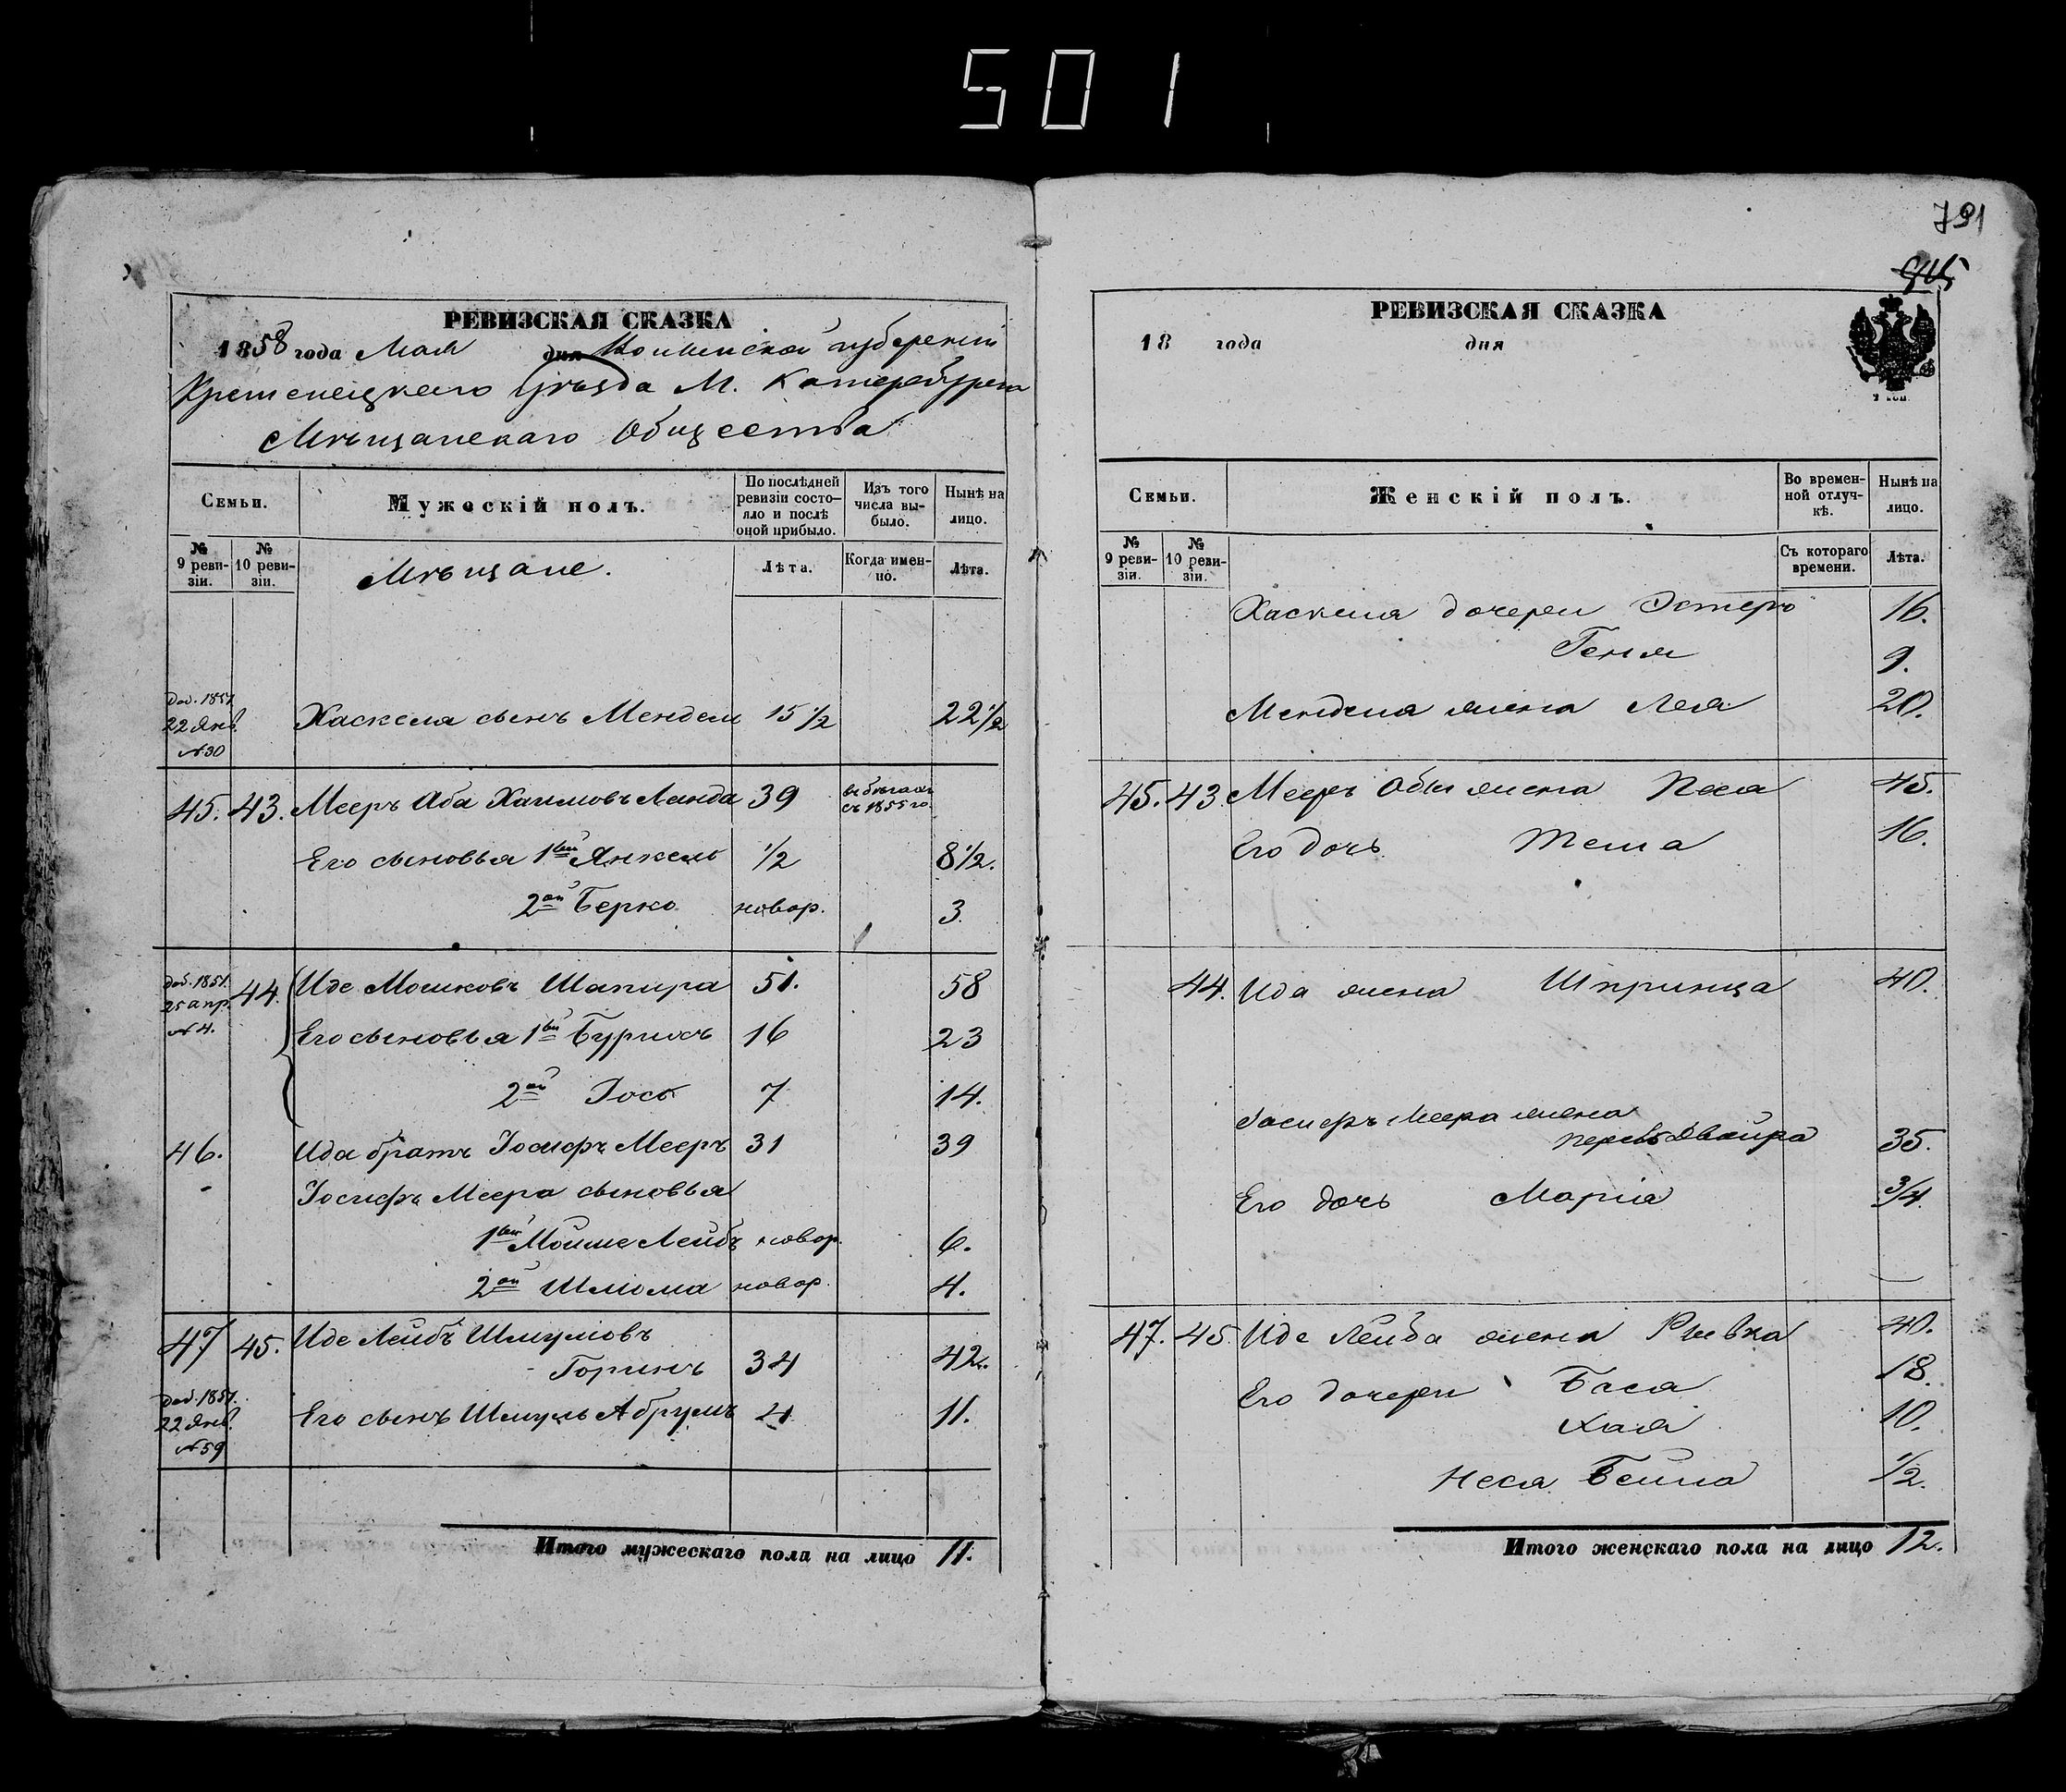 501
791
РЕВИЗСКАЯ СКАЗКА
1858 года Мая дня Волынской губерніи
Кременецкаго уѣзда М. Катербурга
Мѣщанскаго Общества
Семьи.
Мужескій полъ.
По послѣдней ревизіи состо-
яло и послѣ
оной прибыло.
Изъ того
числа вы-
было.
Нынѣ на
лицо.
№
9 реви-
зіи.
№
10 реви-
зіи.
Мѣщане.
Лѣта.
Когда имен-
но.
Лѣта.
Доб. 1851
22 Янв.
№30
Хаскеля сынъ Мендель 15½ 22½
45. 43. Мееръ Аба Хаимовъ Ланда 39 въ бѣгахъ
съ 1855 го.
Его сыновья 1вый Янкель ½ 8½.
2ой Берко новор. 3.
доб. 1851.
25 апр.
№4.
44. Иде Мошковъ Шапира 51. 58
Его сыновья 1вый Бурихъ 16 23
2ой Іось 7 14.
46. Ида братъ Іосифъ Мееръ 31 39
Іосифъ Меера сыновья
1вый Мойше Лейбъ новор. 6.
2ой Шліома новор. 4.
47 45. Иде Лейбъ Шмулювъ
Горинъ 34 42.
Доб. 1851.
22 Янв.
№59
Его сынъ Шмуль Абрумъ 4 11.
Итого мужескаго пола на лицо 11.
РЕВИЗСКАЯ СКАЗКА
18 года дня
Семьи.
Женскій полъ.
Во времен-
ной отлуч-
кѣ.
Нынѣ на
лицо.
№
9 реви-
зіи.
№
10 реви-
зіи.
Съ котораго
времени.
Лѣта.
Хаскеля дочери Эстеръ 16.
Геня 9.
Менделя жена Лея 20.
45. 43. Мееръ Обы жена Песя 45.
Его дочь Теша 16.
44. Ида жена Шпринца 40.
Іосифъ Меера жена
Двойра 35.
Его дочь Марія ¾.
47. 45. Иде Лейба жена Ривка 40.
Его дочери Бася 18.
Хая 10.
Неся Бейла ½.
Итого женскаго пола на лицо 12.